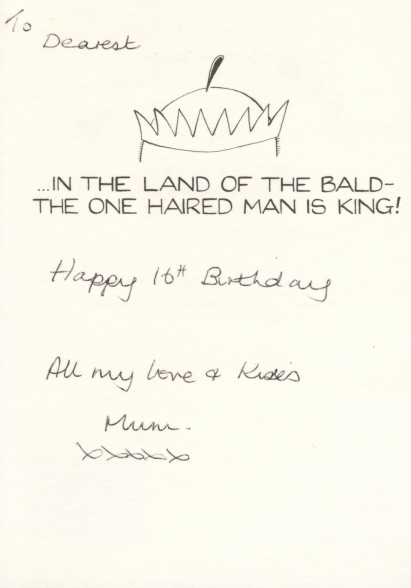 To
Dearest
...IN THE LAND OF THE BALD-
THE ONE HAIRED MAN IS KING!
Happy 16th Birthday
All my love & Kisses
Mum.
xxxxx